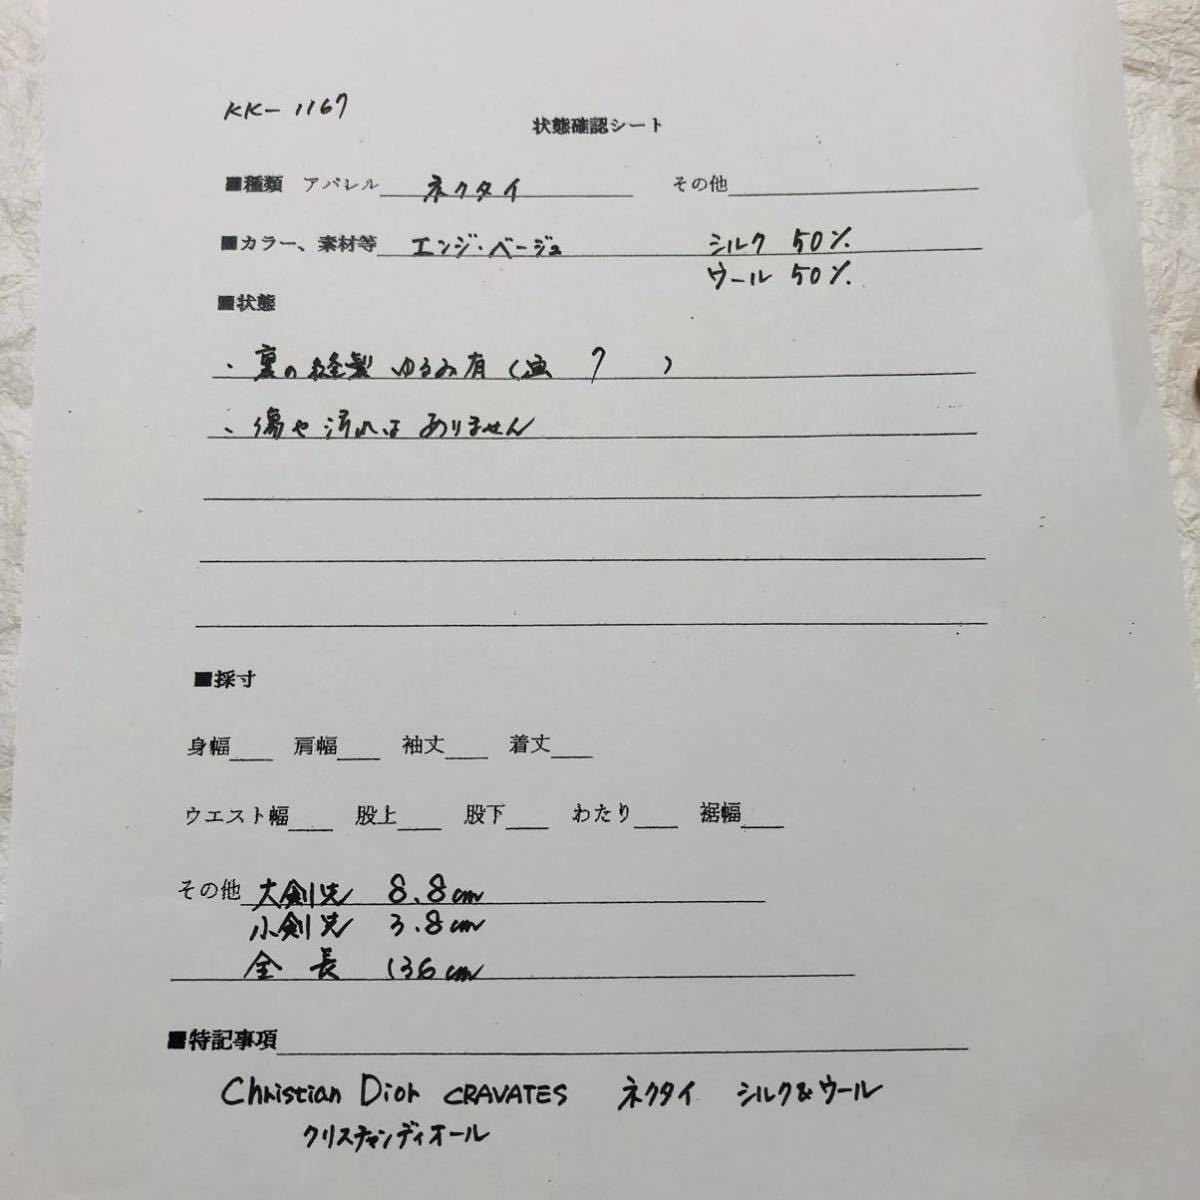 KK-1167
状態確認シート
■種類 アパレル ネクタイ その他
■カラー、素材等 エンジ・ベージュ シルク 50%
ウール 50%
■状態
・裏の縫製 ゆるみ有 (画 7 )
・傷や汚れは ありません
■採寸
身幅 肩幅 袖丈 着丈
ウエスト幅 股上 股下 わたり 裾幅
その他 大剣先 8.8cm
小剣先 3.8cm
全長 136cm
■特記事項
Christian Dior CRAVATES ネクタイ シルク&ウール
クリスチャンディオール